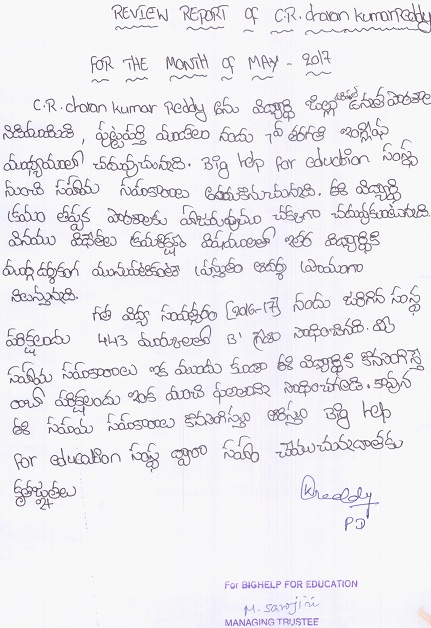 REVIEW REPORT of C.R. charan kumar Reddy
FOR THE MONTH of MAY - 2017
C.R. charan kumar Reddy అను విద్యార్థి జిల్లా పరిషత్ ఉన్నత పాఠశాల
మండలం నందు 7వ తరగతి ఇంగ్లీషు
మాధ్యమంలో చదువుచున్నాడు. Big help for education సంస్థ
నుంచి సహాయ సహకారాలు అందుకొనుచున్నాడు. ఈ విద్యార్థి
పాఠశాలకు చక్కగా చదువుకుంటున్నాడు.
వినయం విధేయత ఇతర విద్యార్థులకి
ఆదర్శ
నిలుస్తున్నాడు.
గత విద్యా సంవత్సరం [2016-17] నందు జరిగిన
పరీక్షలందు 443 మార్కులతో B' గ్రేడు సాధించినాడు. మీ
సహాయ సహకారాలు ఇక ముందు కూడా ఈ విద్యార్థికి కొనసాగిస్తే
ఇంకా మంచి ఫలితాలను సాధించగలడు. కావున
ఈ సహాయ సహకారాలు Big help
for education సంస్థ ద్వారా సహాయం చేయుచున్న దాతకు
కృతజ్ఞతలు
Kreddy
PD
For BIGHELP FOR EDUCATION
M. Sarojini
MANAGING TRUSTEE